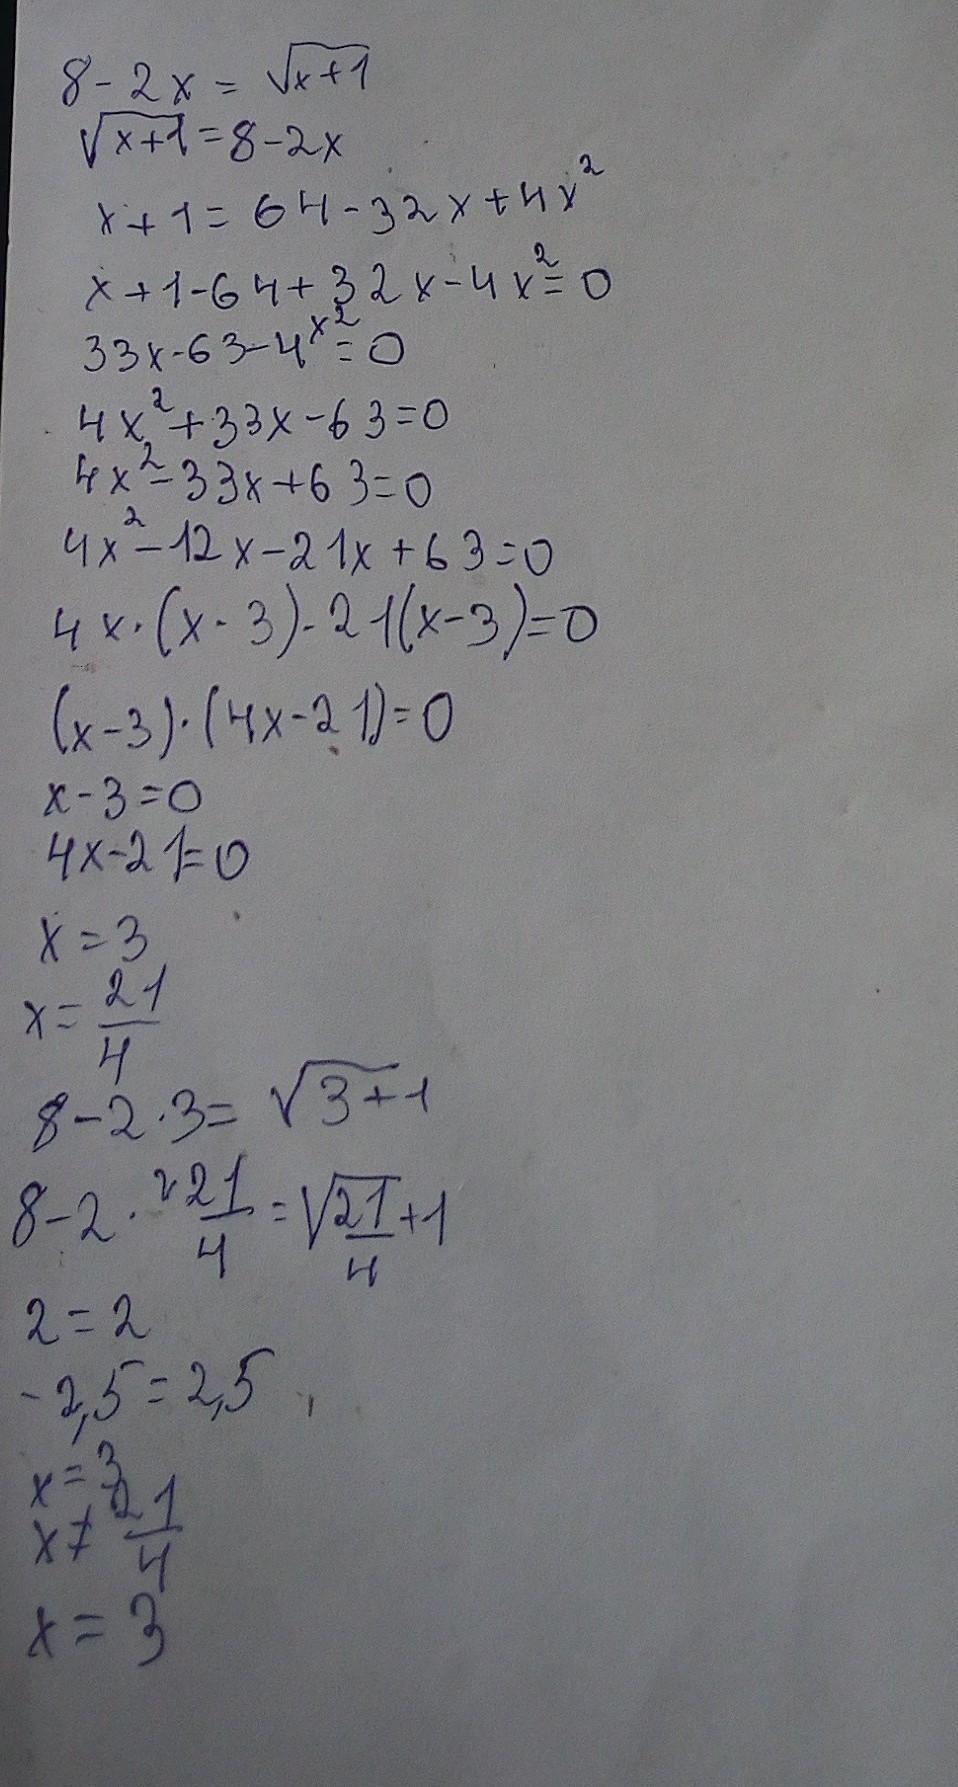 8-2x = √x+1
√x+1=8-2x
x+1=64-32x+4x²
x+1-64+32x-4x²=0
33x-63-4x²=0
4x²+33x-63=0
4x²-33x+63=0
4x²-12x-21x+63=0
4x·(x-3)-21(x-3)=0
(x-3)·(4x-21)=0
x-3=0
4x-21=0
x=3
x=21/4
8-2·3=√3+1
8-2·21/4=√21/4+1
2=2
-2,5=2,5
x=3
x≠21/4
x=3